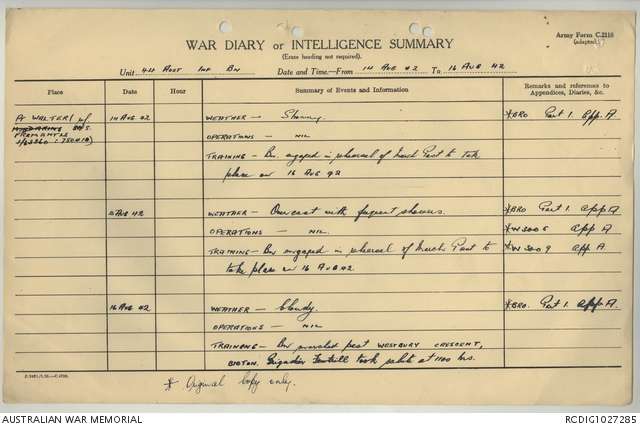 Army Form C.2118
(adapted)
WAR DIARY or INTELLIGENCE SUMMARY
(Erase heading not required).
Unit 44 Aust Inf Bn Date and Time—From 14 Aug 42 To 16 Aug 42
Place Date Hour Summary of Events and Information Remarks and references to Appendices, Diaries, &c.
14 Aug 42 WEATHER — Showery *BRO Part 1. App. A
FREMANTLE
OPERATIONS — NIL
TRAINING — Bn engaged in rehearsal of March Past to take
place on 16 Aug 42
Aug 42 WEATHER — Overcast with frequent showers. *BRO Part 1. App A
OPERATIONS — NIL. App A
TRAINING — Bn engaged in rehearsal of March Past to App A
take place on 16 Aug 42.
16 Aug 42 WEATHER — Cloudy. *BRO. Part 1. App. A.
OPERATIONS — NIL
TRAINING — Bn marched past WESTBURY CRESCENT,
BICTON. Brigadier took salute at 1100 hrs.
* Original copy only.
AUSTRALIAN WAR MEMORIAL RCDIG1027285